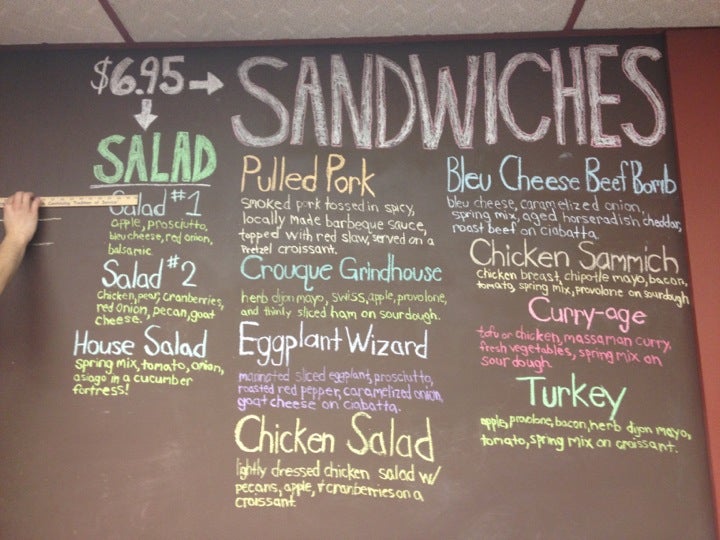 $6.95 → SANDWICHES
SALAD
Salad #1
apple, prosciutto,
bleu cheese, red onion,
balsamic
Salad #2
chicken, pear, cranberries,
red onion, pecan, goat
cheese
House Salad
spring mix, tomato, onion,
asiago in a cucumber
fortress!
Pulled Pork
smoked pork tossed in spicy,
locally made barbeque sauce,
topped with red slaw, served on a
Pretzel croissant.
Crouque Grindhouse
herb dijon mayo, swiss, apple, provolone,
and thinly sliced ham on sourdough.
Eggplant Wizard
marinated sliced eggplant, prosciutto,
roasted red pepper, caramelized onion,
goat cheese on ciabatta.
Chicken Salad
lightly dressed chicken salad w/
pecans, apple, + cranberries on a
croissant
Bleu Cheese Beef Bomb
bleu cheese, caramelized onion,
spring mix, aged horseradish cheddar,
roast beef on ciabatta
Chicken Sammich
chicken breast, chipotle mayo, bacon,
tomato, spring mix, provolone on sourdough
Curry-age
tofu or chicken, massaman curry,
fresh vegetables, spring mix on
sour dough
Turkey
apple, provolone, bacon, herb dijon mayo,
tomato, spring mix on croissant.